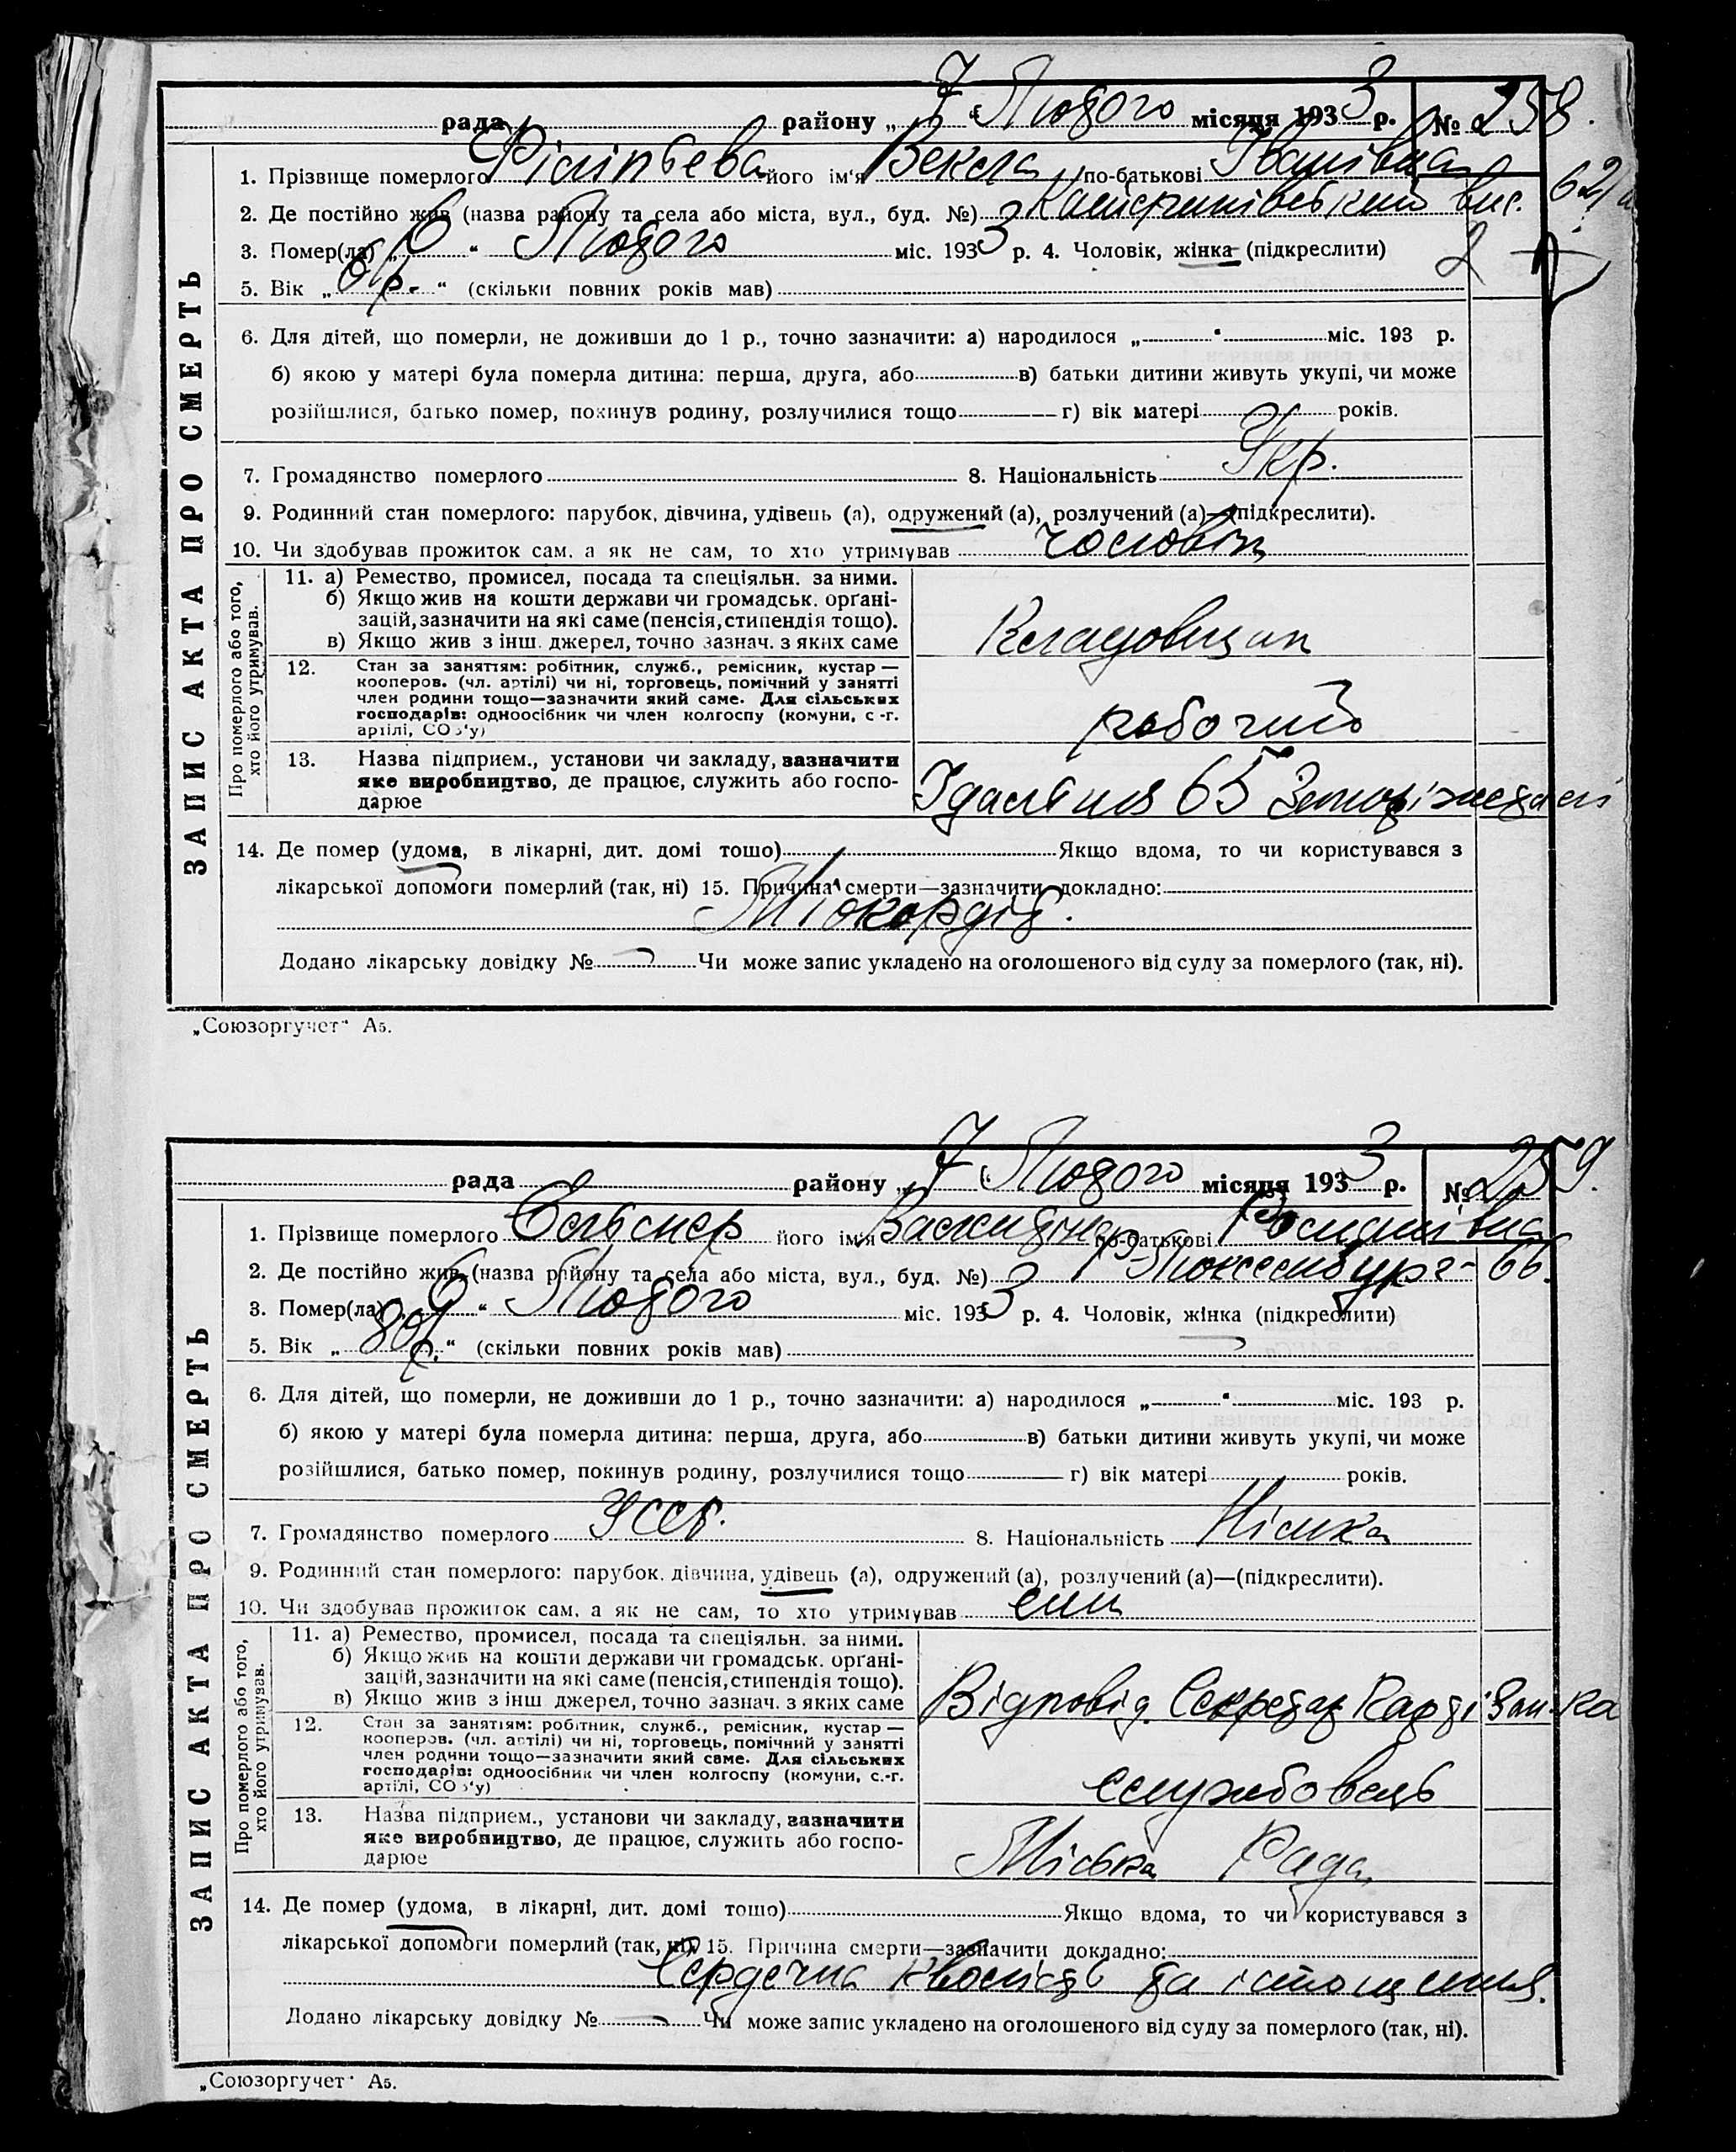 рада района „7“ Лютого місяця 1933 р. № 258.
1. Прізвище померлого Філіпьева його ім'я Векла по-батькові Іванівна
2. Де постійно жив (назва району та села або міста, вул., буд. №) вис. 62/
3. Помер(ла) „6“ Лютого міс. 1933 р. 4. Чоловік, жінка (підкреслити)
5. Вік „ р.“ (скільки повних років мав)
6. Для дітей, що померли, не доживши до 1 р., точно зазначити: а) народилося „ “ міс. 193 р.
б) якою у матері була померла дитина: перша, друга, або в) батьки дитини живуть укупі, чи може
розійшлися, батько помер, покинув родину, розлучилися тощо г) вік матері років.
7. Громадянство померлого 8. Національність Укр.
9. Родинний стан померлого: парубок, дівчина, удівець (а), одружений (а), розлучений (а)—(підкреслити).
10. Чи здобував прожиток сам, а як не сам, то хто утримував чоловік
ЗАПИС АКТА ПРО СМЕРТЬ
Про померлого або того,
хто його утримував.
11. а) Ремество, промисел, посада та спеціяльн. за ними.
б) Якщо жив на кошти держави чи громадськ. орґані-
зацій, зазначити на які саме (пенсія, стипендія тощо).
в) Якщо жив з інш. джерел, точно зазнач. з яких саме
Кладовщик
12. Стан за заняттям: робітник, служб., ремісник, кустар —
кооперов. (чл. артілі) чи ні, торговець, помічний у занятті
член родини тощо—зазначити який саме. Для сільських
господарів: одноосібник чи член колгоспу (комуни, с.-г.
артілі, СОЗ'у)
робочий
13. Назва підприєм., установи чи закладу, зазначити
яке виробництво, де працює, служить або госпо-
дарює
Їдальня 65
14. Де помер (удома, в лікарні, дит. домі тощо) Якщо вдома, то чи користувався з
лікарської допомоги померлий (так, ні) 15. Причина смерти—зазначити докладно:
Міокордіт.
Додано лікарську довідку № Чи може запис укладено на оголошеного від суду за померлого (так, ні).
„Союзоргучет“ А5.
рада району „7“ Лютого місяця 1933 р. № 259.
1. Прізвище померлого його ім'я по-батькові
2. Де постійно жив (назва району та села або міста, вул., буд. №) Р-Люксембург- 66.
3. Помер(ла) „6“ Лютого міс. 1933 р. 4. Чоловік, жінка (підкреслити)
5. Вік „80 р.“ (скільки повних років мав)
6. Для дітей, що померли, не доживши до 1 р., точно зазначити: а) народилося „ “ міс. 193 р.
б) якою у матері була померла дитина: перша, друга, або в) батьки дитини живуть укупі, чи може
розійшлися, батько помер, покинув родину, розлучилися тощо г) вік матері років.
7. Громадянство померлого УССР. 8. Національність Німка
9. Родинний стан померлого: парубок, дівчина, удівець (а), одружений (а), розлучений (а)—(підкреслити).
10. Чи здобував прожиток сам, а як не сам, то хто утримував син
ЗАПИС АКТА ПРО СМЕРТЬ
Про померлого або того,
хто його утримував.
11. а) Ремество, промисел, посада та спеціяльн. за ними.
б) Якщо жив на кошти держави чи громадськ. орґані-
зацій, зазначити на які саме (пенсія, стипендія тощо).
в) Якщо жив з інш джерел, точно зазнач. з яких саме
Відповід. Секретар
12. Стан за заняттям: робітник, служб., ремісник, кустар —
кооперов. (чл. артілі) чи ні, торговець, помічний у занятті
член родини тощо—зазначити який саме. Для сільських
господарів: одноосібник чи член колгоспу (комуни, с.-г.
артілі, СОЗ'у)
службовець
13. Назва підприєм., установи чи закладу, зазначити
яке виробництво, де працює, служить або госпо-
дарює
Міська Рада
14. Де помер (удома, в лікарні, дит. домі тощо) Якщо вдома, то чи користувався з
лікарської допомоги померлий (так, ні) 15. Причина смерти—зазначити докладно:
Сердечна кволість та істощення.
Додано лікарську довідку № Чи може запис укладено на оголошеного від суду за померлого (так, ні).
„Союзоргучет“ А5.